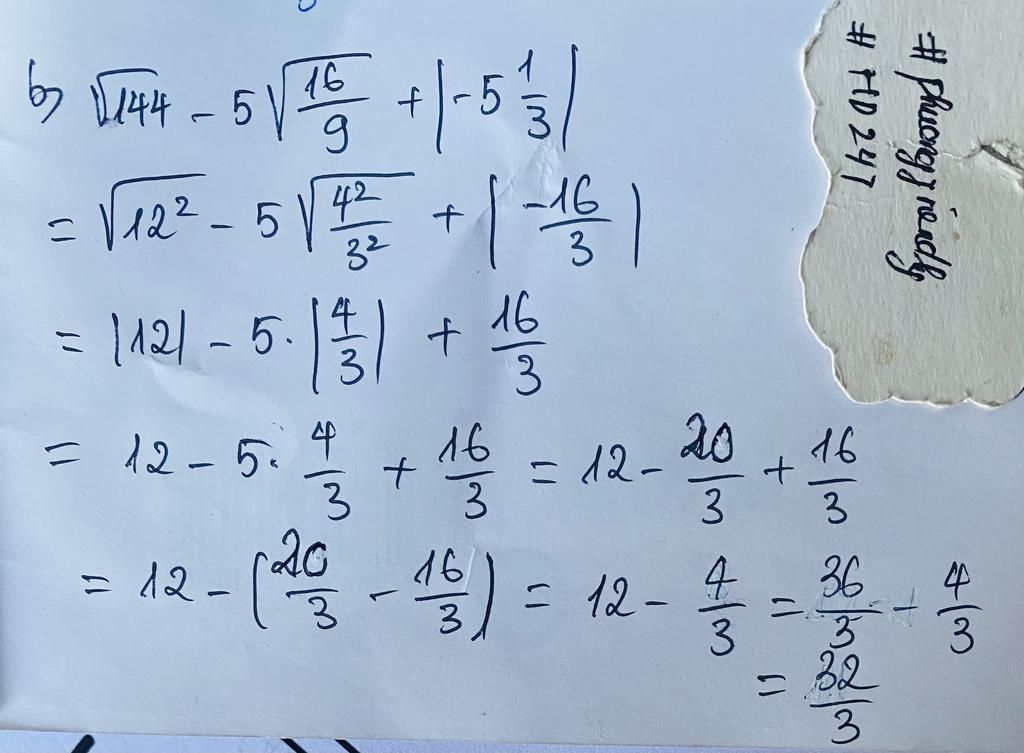 b) √144 - 5√(16/9) + |-5 1/3|
= √(12²) - 5√(4²/3²) + |-16/3|
= |12| - 5·|4/3| + 16/3
= 12 - 5·4/3 + 16/3 = 12 - 20/3 + 16/3
= 12 - (20/3 - 16/3) = 12 - 4/3 = 36/3 - 4/3
= 32/3
# HD247